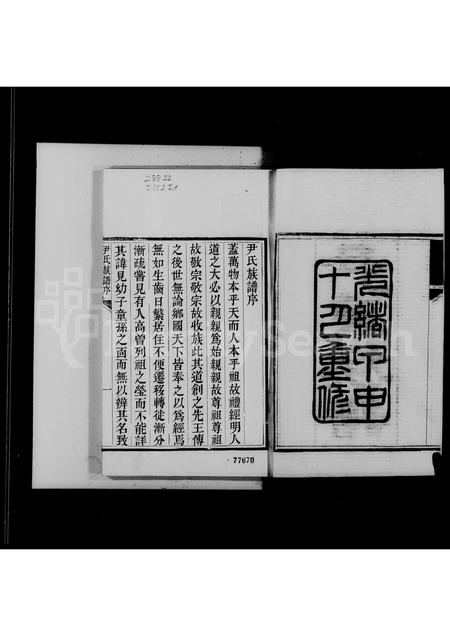 光緒甲申
十月重修
尹氏族譜序
蓋萬物本乎天而人本乎祖故禮經明人
道之大必以親親爲始親親故尊祖尊祖
故敬宗敬宗故收族此其道創之先王傳
之後世無論鄉國天下皆奉之以爲經焉
無如生齒日繁居住不便遷移轉徙漸分
漸疏嘗見有人高曾列祖之塋而不能詳
其諱見幼子童孫之面而無以辨其名致
尹氏族譜序
77670